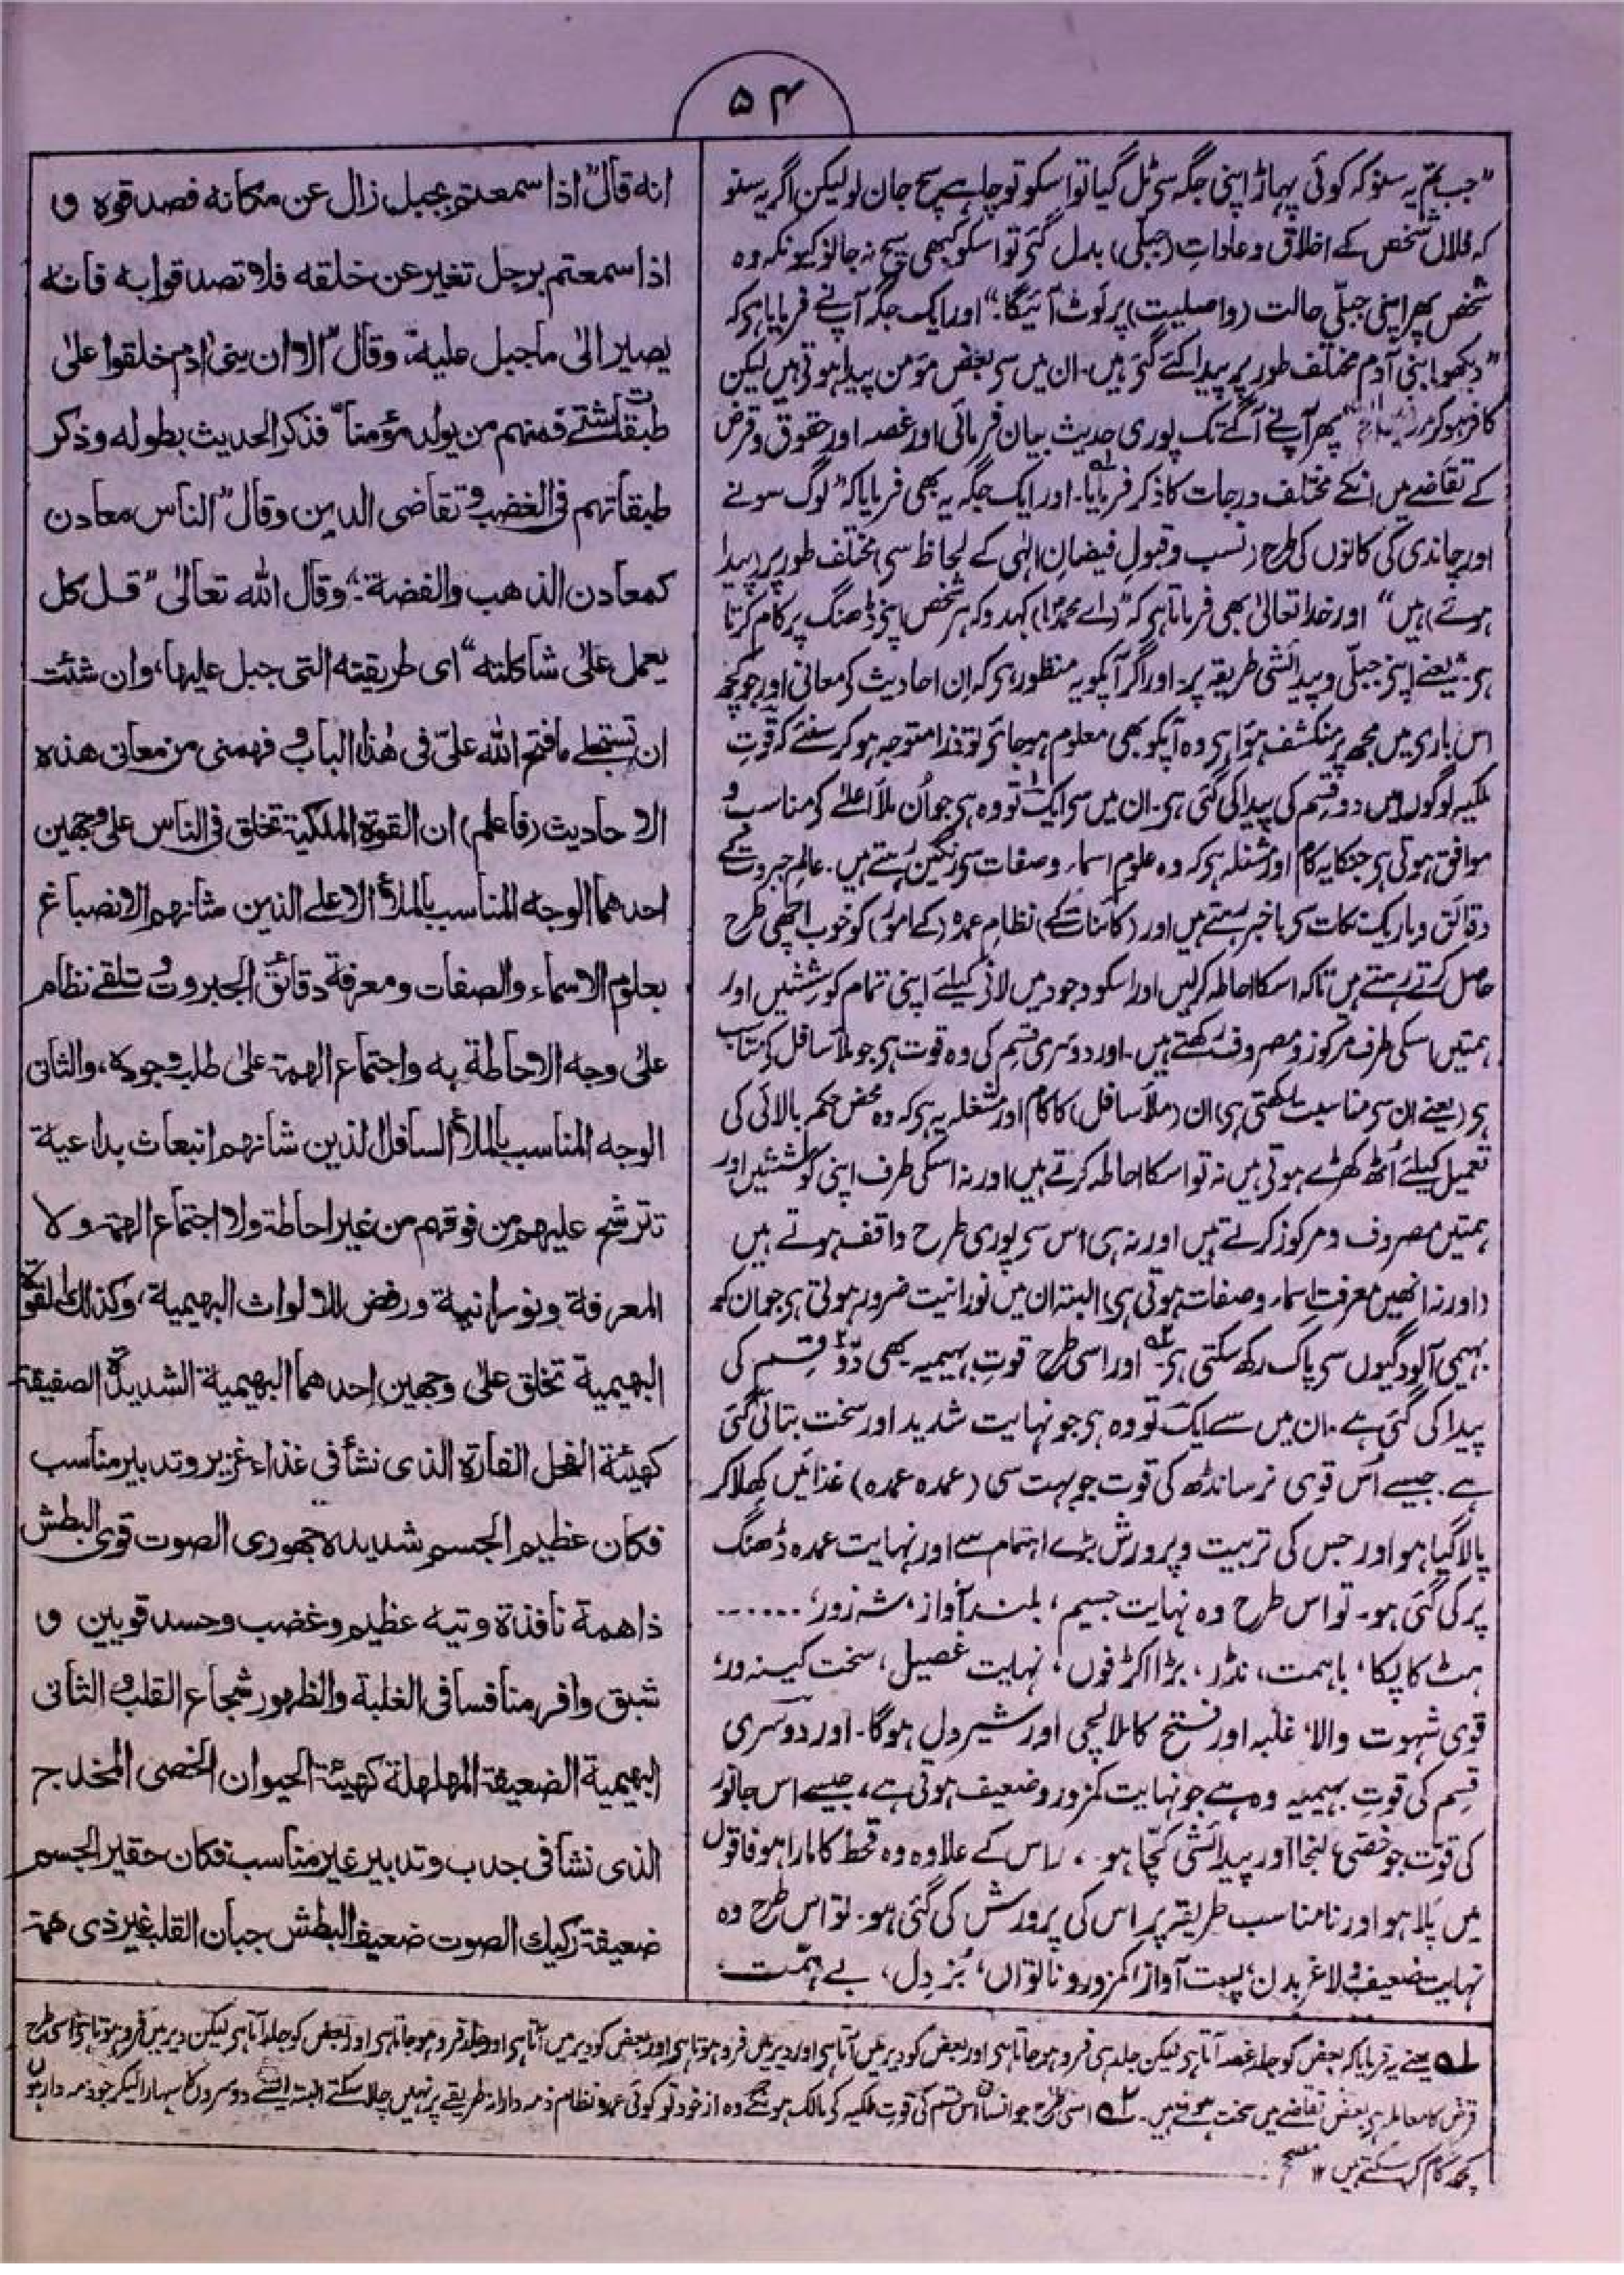 ۵۴
"جب تم یہ سنو کہ کوئی پہاڑ اپنی جگہ سی ٹل گیا تو اسکو تو چاہے سچ جان لو لیکن اگر یہ سنو
کہ فلاں شخص کے اخلاق و عادات (جبلی) بدل گئی تو اسکو کبھی سچ نہ جانو کیونکہ وہ
شخص پھر اپنی جبلّی حالت (و اصلیت) پر لوٹ آئیگا۔" اور ایک جگہ آپنے فرمایا ہی کہ
"دیکھو! بنی آدم مختلف طور پر پیدا کئے گئی ہیں۔ ان میں سی بعض مؤمن پیدا ہوتی ہیں لیکن
کافر ہو کر مر پھر آپنے آگے تک پوری حدیث بیان فرمائی اور غصہ اور حقوق و قرض
کے تقاضے میں انکے مختلف درجات کا ذکر فرمایا۔ اور ایک جگہ یہ بھی فرمایا کہ "لوگ سونے
اور چاندی کی کانوں کی طرح (نسب و قبول فیضانِ الٰہی کے لحاظ سی مختلف طور پر (پیدا
ہوئے) ہیں" اور خدا تعالیٰ بھی فرماتا ہی کہ "(اے محمدؐ!) کہدو کہ ہر شخص اپنی ڈھنگ پر کام کرتا
ہی" یعنے اپنی جبلّی و پیدائشی طریقہ پر۔ اور اگر آپکو یہ منظور ہی کہ ان احادیث کی معانی اور جو کچھ
اس باری میں مجھ پر منکشف ہوا ہی وہ آپکو بھی معلوم ہو جائی تو ذرا متوجہ ہو کر سنئے کہ قوتِ
ملکیہ لوگوں میں دو قسم کی پیدا کی گئی ہی۔ ان میں سی ایک تو وہ ہی جو اُن ملأ اعلےٰ کو مناسب و
موافق ہوتی ہی جنکا یہ کام اور مشغلہ ہی کہ وہ علوم اسماء و صفات سی رنگین رہتے ہیں۔ عالمِ جبروت کے
دقائق و باریک نکات سی باخبر رہتے ہیں اور (کائنات کے) نظامِ عمدہ (کے امور) کو خوب اچھی طرح
حاصل کرتے رہتے ہیں تاکہ اسکا احاطہ کرلیں اور اسکو وجود میں لانی کیلئے اپنی تمام کوششیں اور
ہمتیں اسکی طرف مرکوز و مصروف رکھتے ہیں۔ اور دوسری قسم کی وہ قوت ہی جو ملأ سافل کو مناسب
ہی (یعنے ان سی مناسبت رکھتی ہی) ان (ملأ سافل) کا کام اور مشغلہ یہ ہی کہ وہ محض حکم بالائی کی
تعمیل کیلئے اُٹھ کھڑے ہوتی ہیں نہ تو اسکا احاطہ کرتے ہیں اور نہ اسکی طرف اپنی کوششیں اور
ہمتیں مصروف و مرکوز کرتے ہیں اور نہ ہی اس سی پوری طرح واقف ہوتے ہیں
(اور نہ انھیں معرفتِ اسماء و صفات ہوتی ہی) البتہ ان میں نورانیت ضرور ہوتی ہی جو ان کو
بہیمی آلودگیوں سی پاک رکھ سکتی ہی۔ اور اسی طرح قوتِ بہیمیہ بھی دو قسم کی
پیدا کی گئی ہے۔ ان میں سے ایک تو وہ ہی جو نہایت شدید اور سخت بتائی گئی
ہے۔ جیسے اُس قوی نر سانڈھ کی قوت جو بہت سی (عمدہ عمدہ) غذائیں کھلا کر
پالا گیا ہو اور جس کی تربیت و پرورش بڑے اہتمام سے اور نہایت عمدہ ڈھنگ
پر کی گئی ہو۔ تو اس طرح وہ نہایت جسیم، بلند آواز، شہ زور، .......
ہٹ کا پکا، باہمت، نڈر، بڑا اکڑفوں، نہایت غصیل، سخت کینہ ور،
قوی شہوت والا، غلبہ اور فتح کا لالچی اور شیر دل ہوگا۔ اور دوسری
قسم کی قوتِ بہیمیہ وہ ہے جو نہایت کمزور و ضعیف ہوتی ہے، جیسے اس جانور
کی قوّت جو خصّی، لنجا اور پیدائشی کچّا ہو۔، (اس کے علاوہ وہ قحط کا مارا ہو فاقوں
میں پلا ہو اور نامناسب طریقہ پر اس کی پرورش کی گئی ہو۔ تو اس طرح وہ
نہایت ضعیف و لاغر بدن، پست آواز، کمزور و ناتواں، بُزدِل، بے ہمّت،
انه قال "اذا سمعتم بجبل زال عن مكانه فصدقوه و
اذا سمعتم برجل تغير عن خلقه فلا تصدقوا به فانه
يصير الىٰ ما جبل عليه"، وقال "الا ان بنى اٰدم خلقوا علىٰ
طبقات شتّے فمنهم من يولد مؤمنا" فذكر الحديث بطوله وذكر
طبقاتهم فى الغضب و تقاضى الدين وقال "الناس معادن
كمعادن الذهب والفضة"؛ وقال الله تعالىٰ "قل كل
يعمل علىٰ شاكلته" اى طريقته التى جبل عليها، وان شئت
ان تستجلے ما فتح الله علىّ فى هٰذا الباب و فهمنى من معانى هذه
الاحاديث (فاعلم) ان القوة الملكية تخلق فى الناس على وجهين
احدهما الوجه المناسب بالملأ الاعلے الذين شانهم الانصباغ
بعلوم الاسماء والصفات ومعرفة دقائق الجبروت و تلقے نظام
علىٰ وجه الاحاطة به واجتماع الهمة علىٰ طلب وجوده، والثانى
الوجه المناسب بالملأ السافل الذين شانهم انبعاث بداعية
تترشح عليهم من فوقهم من غير احاطة ولا اجتماع الهمة ولا
المعرفة ونورانية ورفض للالواث البهيمية، وكذلك القوة
البهيمية تخلق علىٰ وجهين احدهما البهيمية الشديدة الصفيقة
كهيئة الفحل الفارة الذى نشأ فى غذاء غزير وتدبير مناسب
فكان عظيم الجسم شديده جهورى الصوت قوى البطش
ذا همة نافذة وتيه عظيم وغضب وحسد قويين و
شبق وافر منافسا فى الغلبة والظهور شجاع القلب و الثانى
البهيمية الضعيفة المهلهلة كهيئة الحيوان الخصى المخدج
الذى نشأ فى جدب وتدبير غير مناسب فكان حقير الجسم
ضعيفة ركيك الصوت ضعيف البطش جبان القلب غير ذى همة
لہ یعنے یہ فرمایا کہ بعض کو جلد غصہ آتا ہی لیکن جلد ہی فرو ہو جاتا ہی اور بعض کو دیر میں آتا ہی اور دیر میں فرو ہوتا ہی اور بعض کو دیر میں آتا ہی اور جلد فرو ہو جاتا ہی اور بعض کو جلد آتا ہی لیکن دیر میں فرو ہوتا ہی اسی طرح
قرض کا معاملہ ہی بعض تقاضے میں سخت ہوتے ہیں۔ ۲ہ اسی طرح جو انسان اس قسم کی قوت ملکیہ کی مالک ہونگے وہ از خود تو کوئی عمدہ نظام ذمہ دارانہ طریقے پر نہیں چلا سکتے البتہ ایسے دوسروں کا سہارا لیکر جو ذمہ دار ہوں
کچھ کام کر سکتے ہیں ۱۲ مصحح